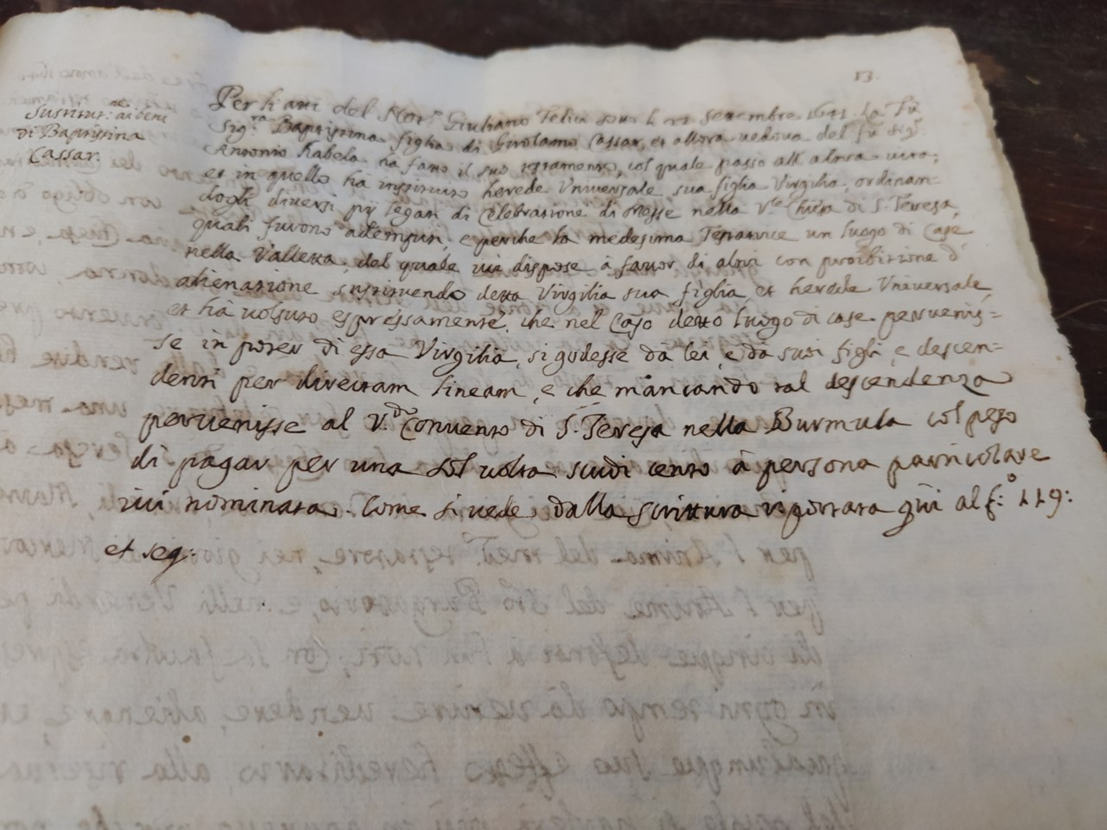 13.
Sustitut:ne ai beni
di Battistina
Cassar.
Per li atti del Not.ro Giuliano Felici sous li 22 settembre 1641 la fù
Sig.ra Battistina figlia di Girolamo Cassar, et allora vedova del fù sig.r
Antonio Habela ha fatto il suo testamento, col quale passò all'altra vita;
et in quello hà instituito herede Universale sua figlia Virgilia, ordinan=
dogli diversi pij legati di Celebratione di Messe nella V.le Chiesa di S. Teresa,
quali furono adempiti, e perche la medesima Testatrice un luogo di Case
nella Valletta, del quale ivi dispose à favor di altri con proibitione d'
alienatione instituendo detta Virgilia sua figlia, et herede Universale,
et hà voluto espressamente, che nel Caso detto luogo di case pervenis=
se in poter di essa Virgilia, si godesse da lei, e da suoi figli, e descen=
denti per directam lineam, e che mancando tal descendenza
pervenisse al V.do Convento di S. Teresa nella Burmula col peso
di pagar per una sol volta scudi cento à persona particolare
ivi nominata. Come si vede dalla scrittura riportata quì al f.o 119:
et seq: